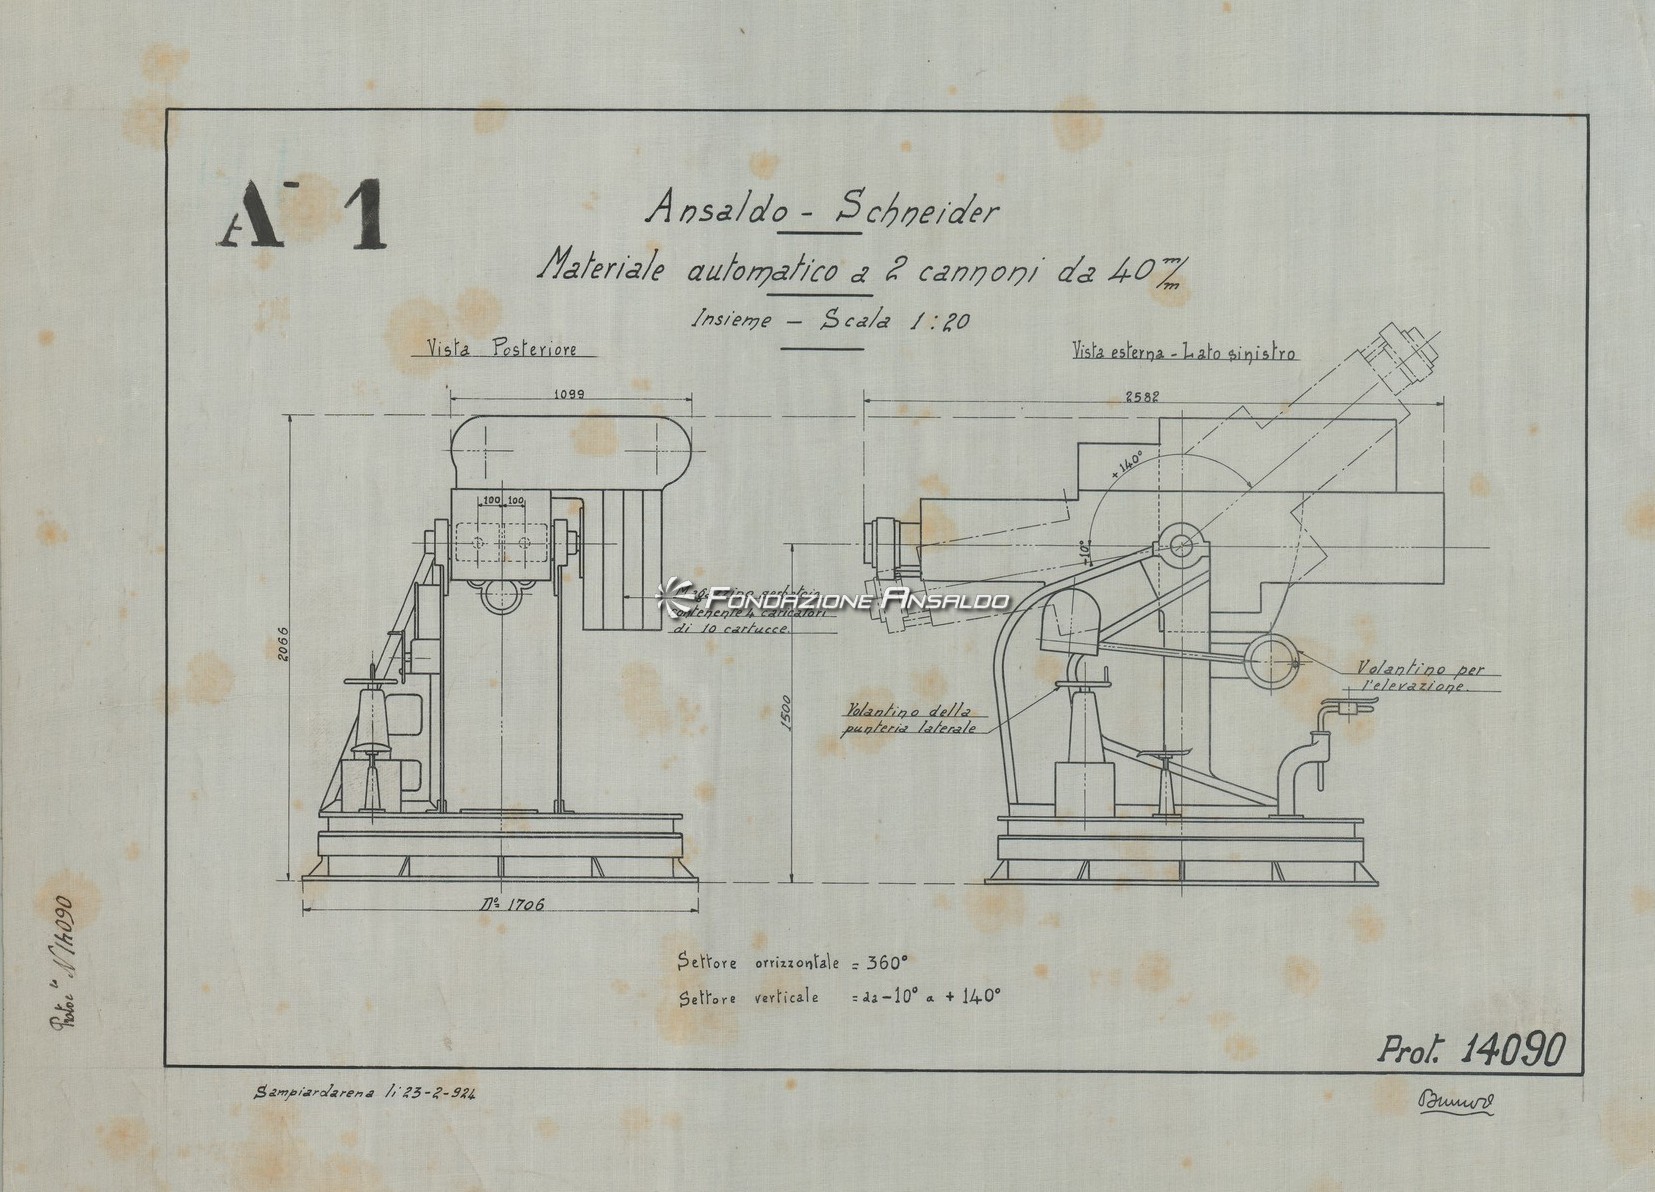 A-1
Ansaldo - Schneider
Materiale automatico a 2 cannoni da 40 m/m
Insieme - Scala 1:20
Vista Posteriore
Vista esterna - Lato sinistro
1099
2582
+140°
100 100
-10°
FONDAZIONE ANSALDO
contenente 4 caricatori
di 10 cartucce.
2066
1500
Volantino per
l'elevazione.
Volantino della
punteria laterale
D° = 1706
Settore orrizzontale = 360°
Settore verticale = da -10° a + 140°
Prot. 14090
Sampiardarena li 23-2-924
Protoc lo N 14090